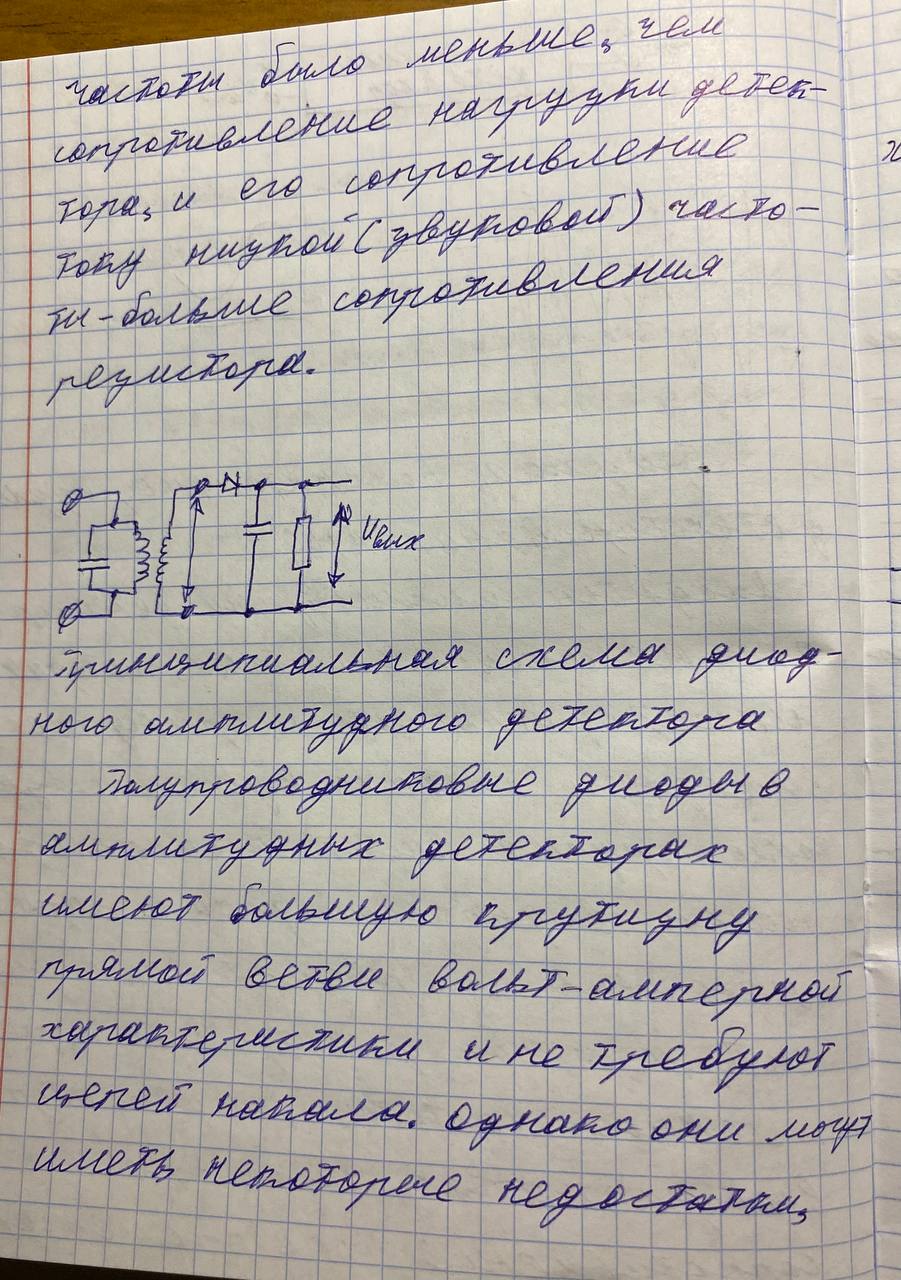 частоты было меньше, чем
сопротивление нагрузки детек-
тора, и его сопротивление
току низкой (звуковой) часто-
ты - больше сопротивления
резистора.
Uвых
Принципиальная схема диод-
ного амплитудного детектора
Полупроводниковые диоды в
амплитудных детекторах
имеют большую крутизну
прямой ветви вольт-амперной
характеристики и не требуют
цепей накала. Однако они могут
иметь некоторые недостатки,